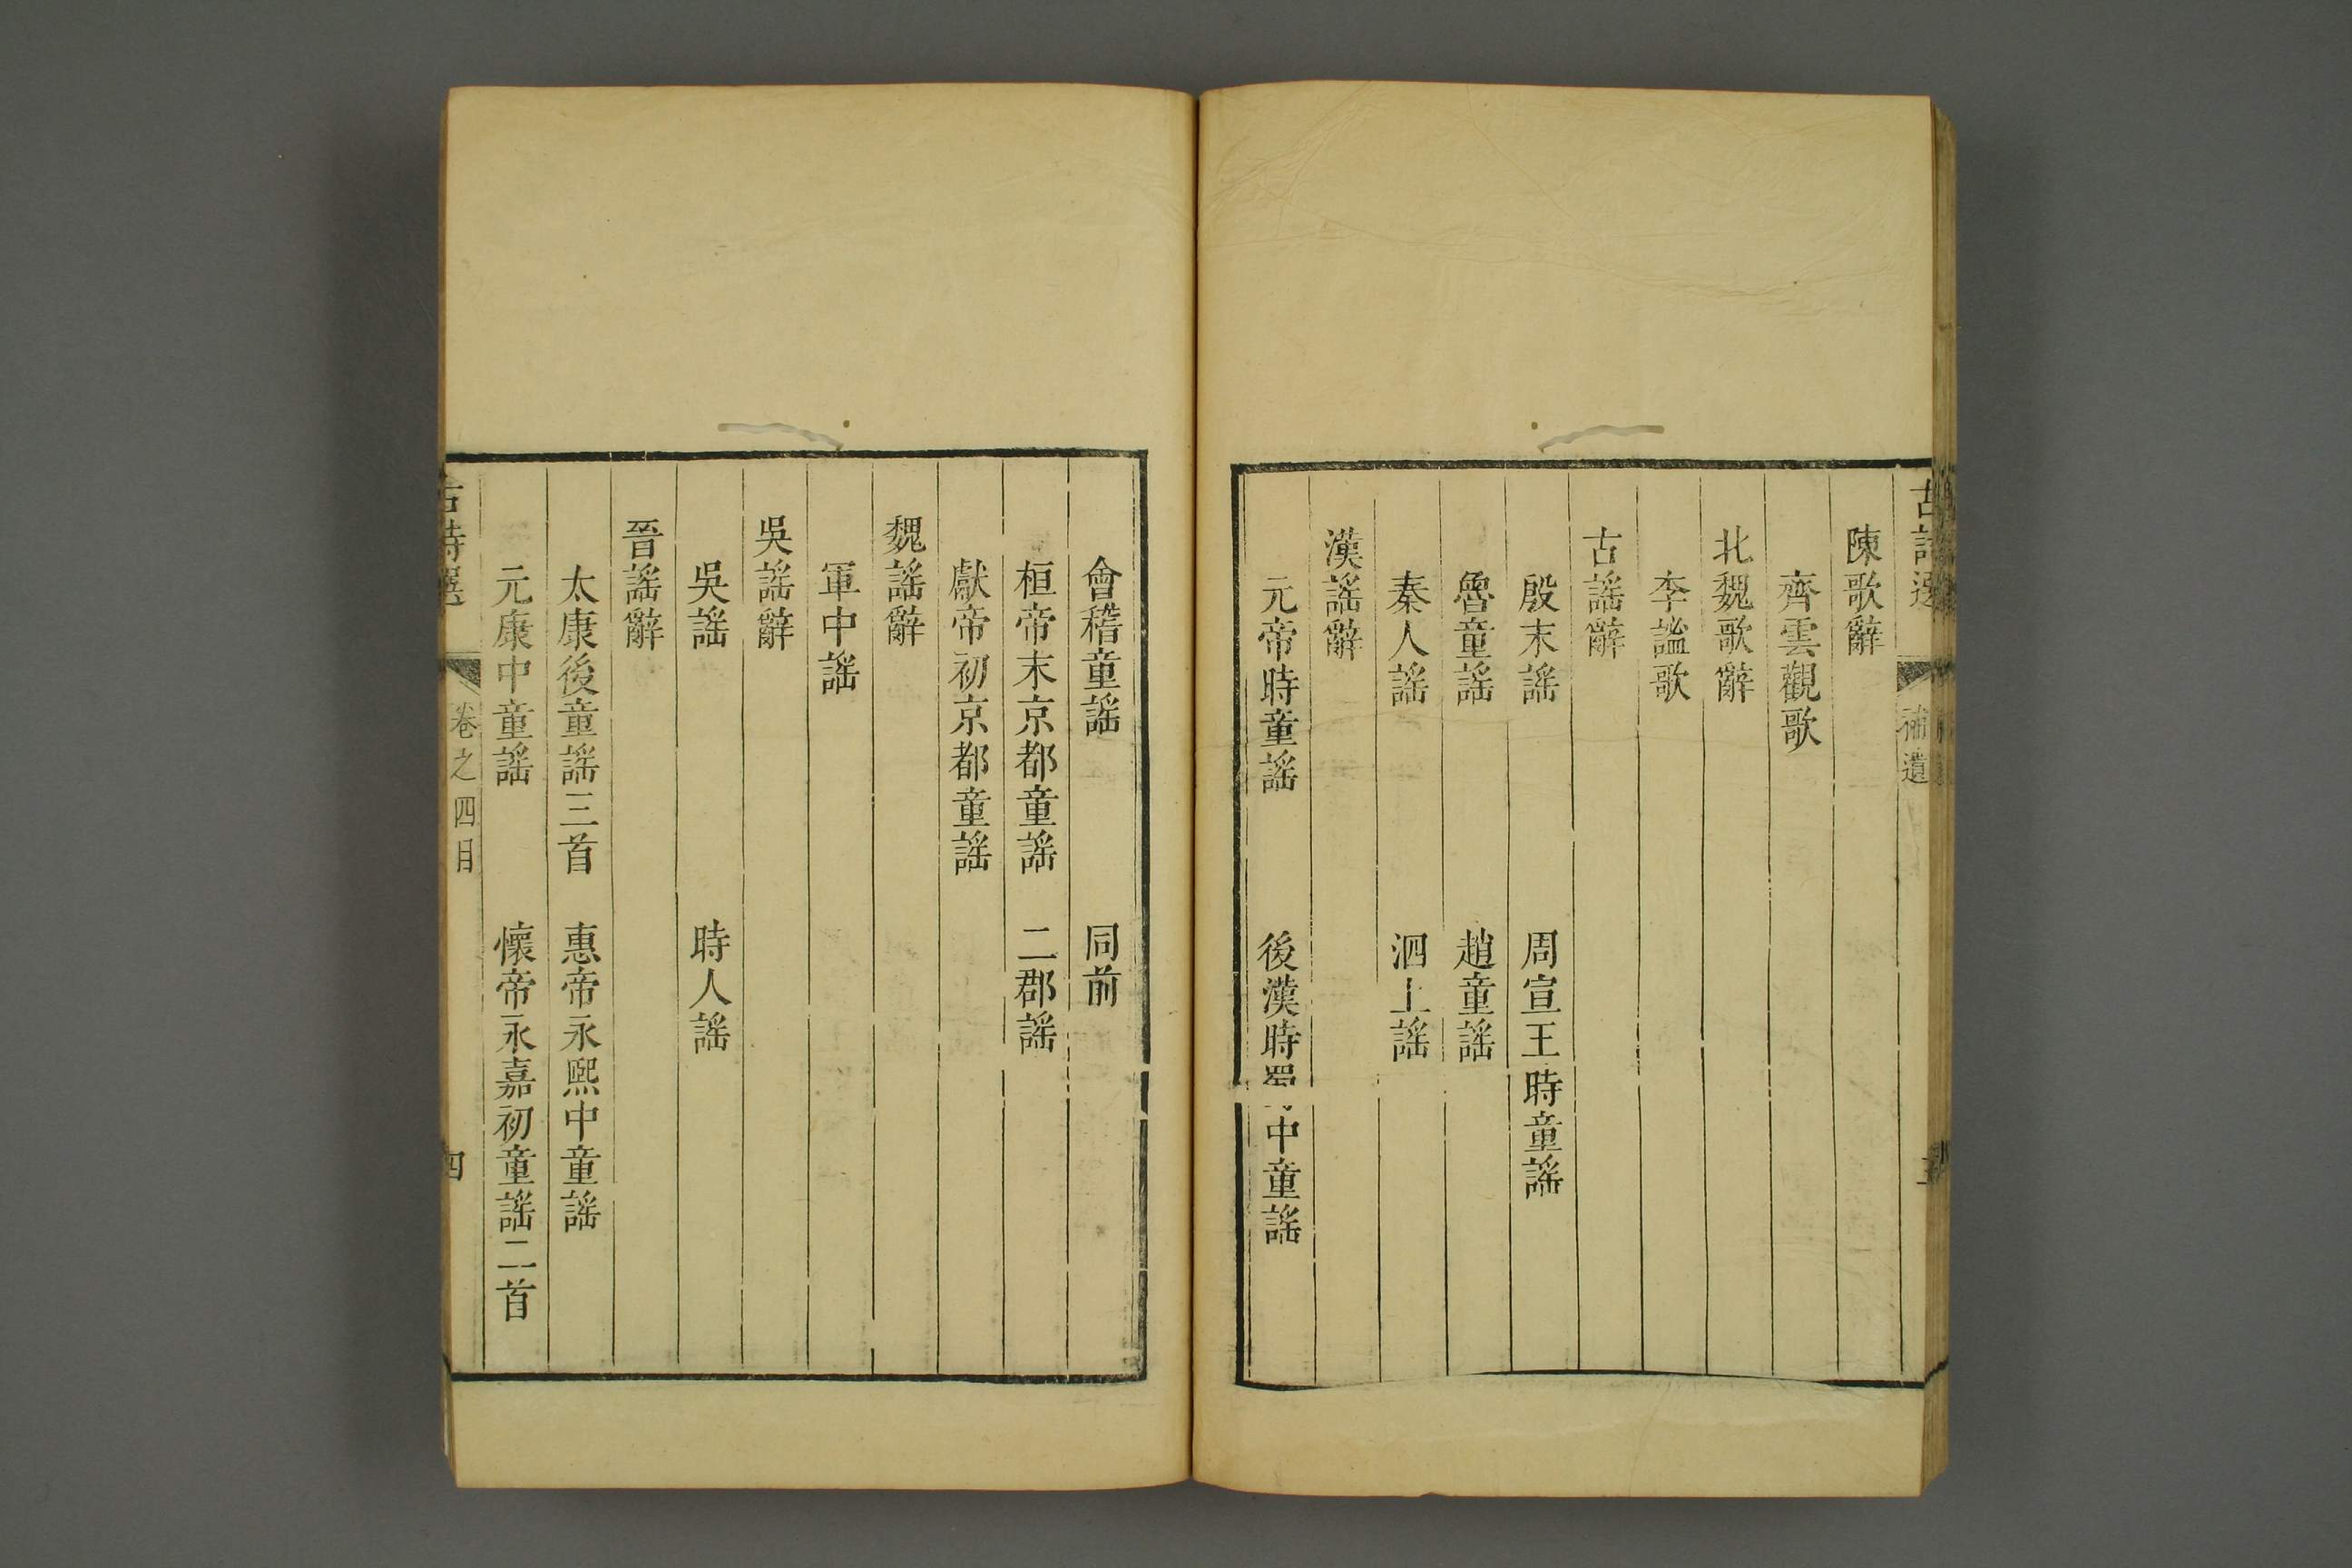 古詩選
補遺
陳歌辭
齊雲觀歌
北魏歌辭
李謐歌
古謠辭
殷末謠 周宣王時童謠
魯童謠 趙童謠
秦人謠 泗上謠
漢謠辭
元帝時童謠 後漢時蜀中童謠
會稽童謠 同前
桓帝末京都童謠 二郡謠
獻帝初京都童謠
魏謠辭
軍中謠
吳謠辭
吳謠 時人謠
晉謠辭
太康後童謠三首 惠帝永熙中童謠
元康中童謠 懷帝永嘉初童謠二首
古詩選 卷之四目 四